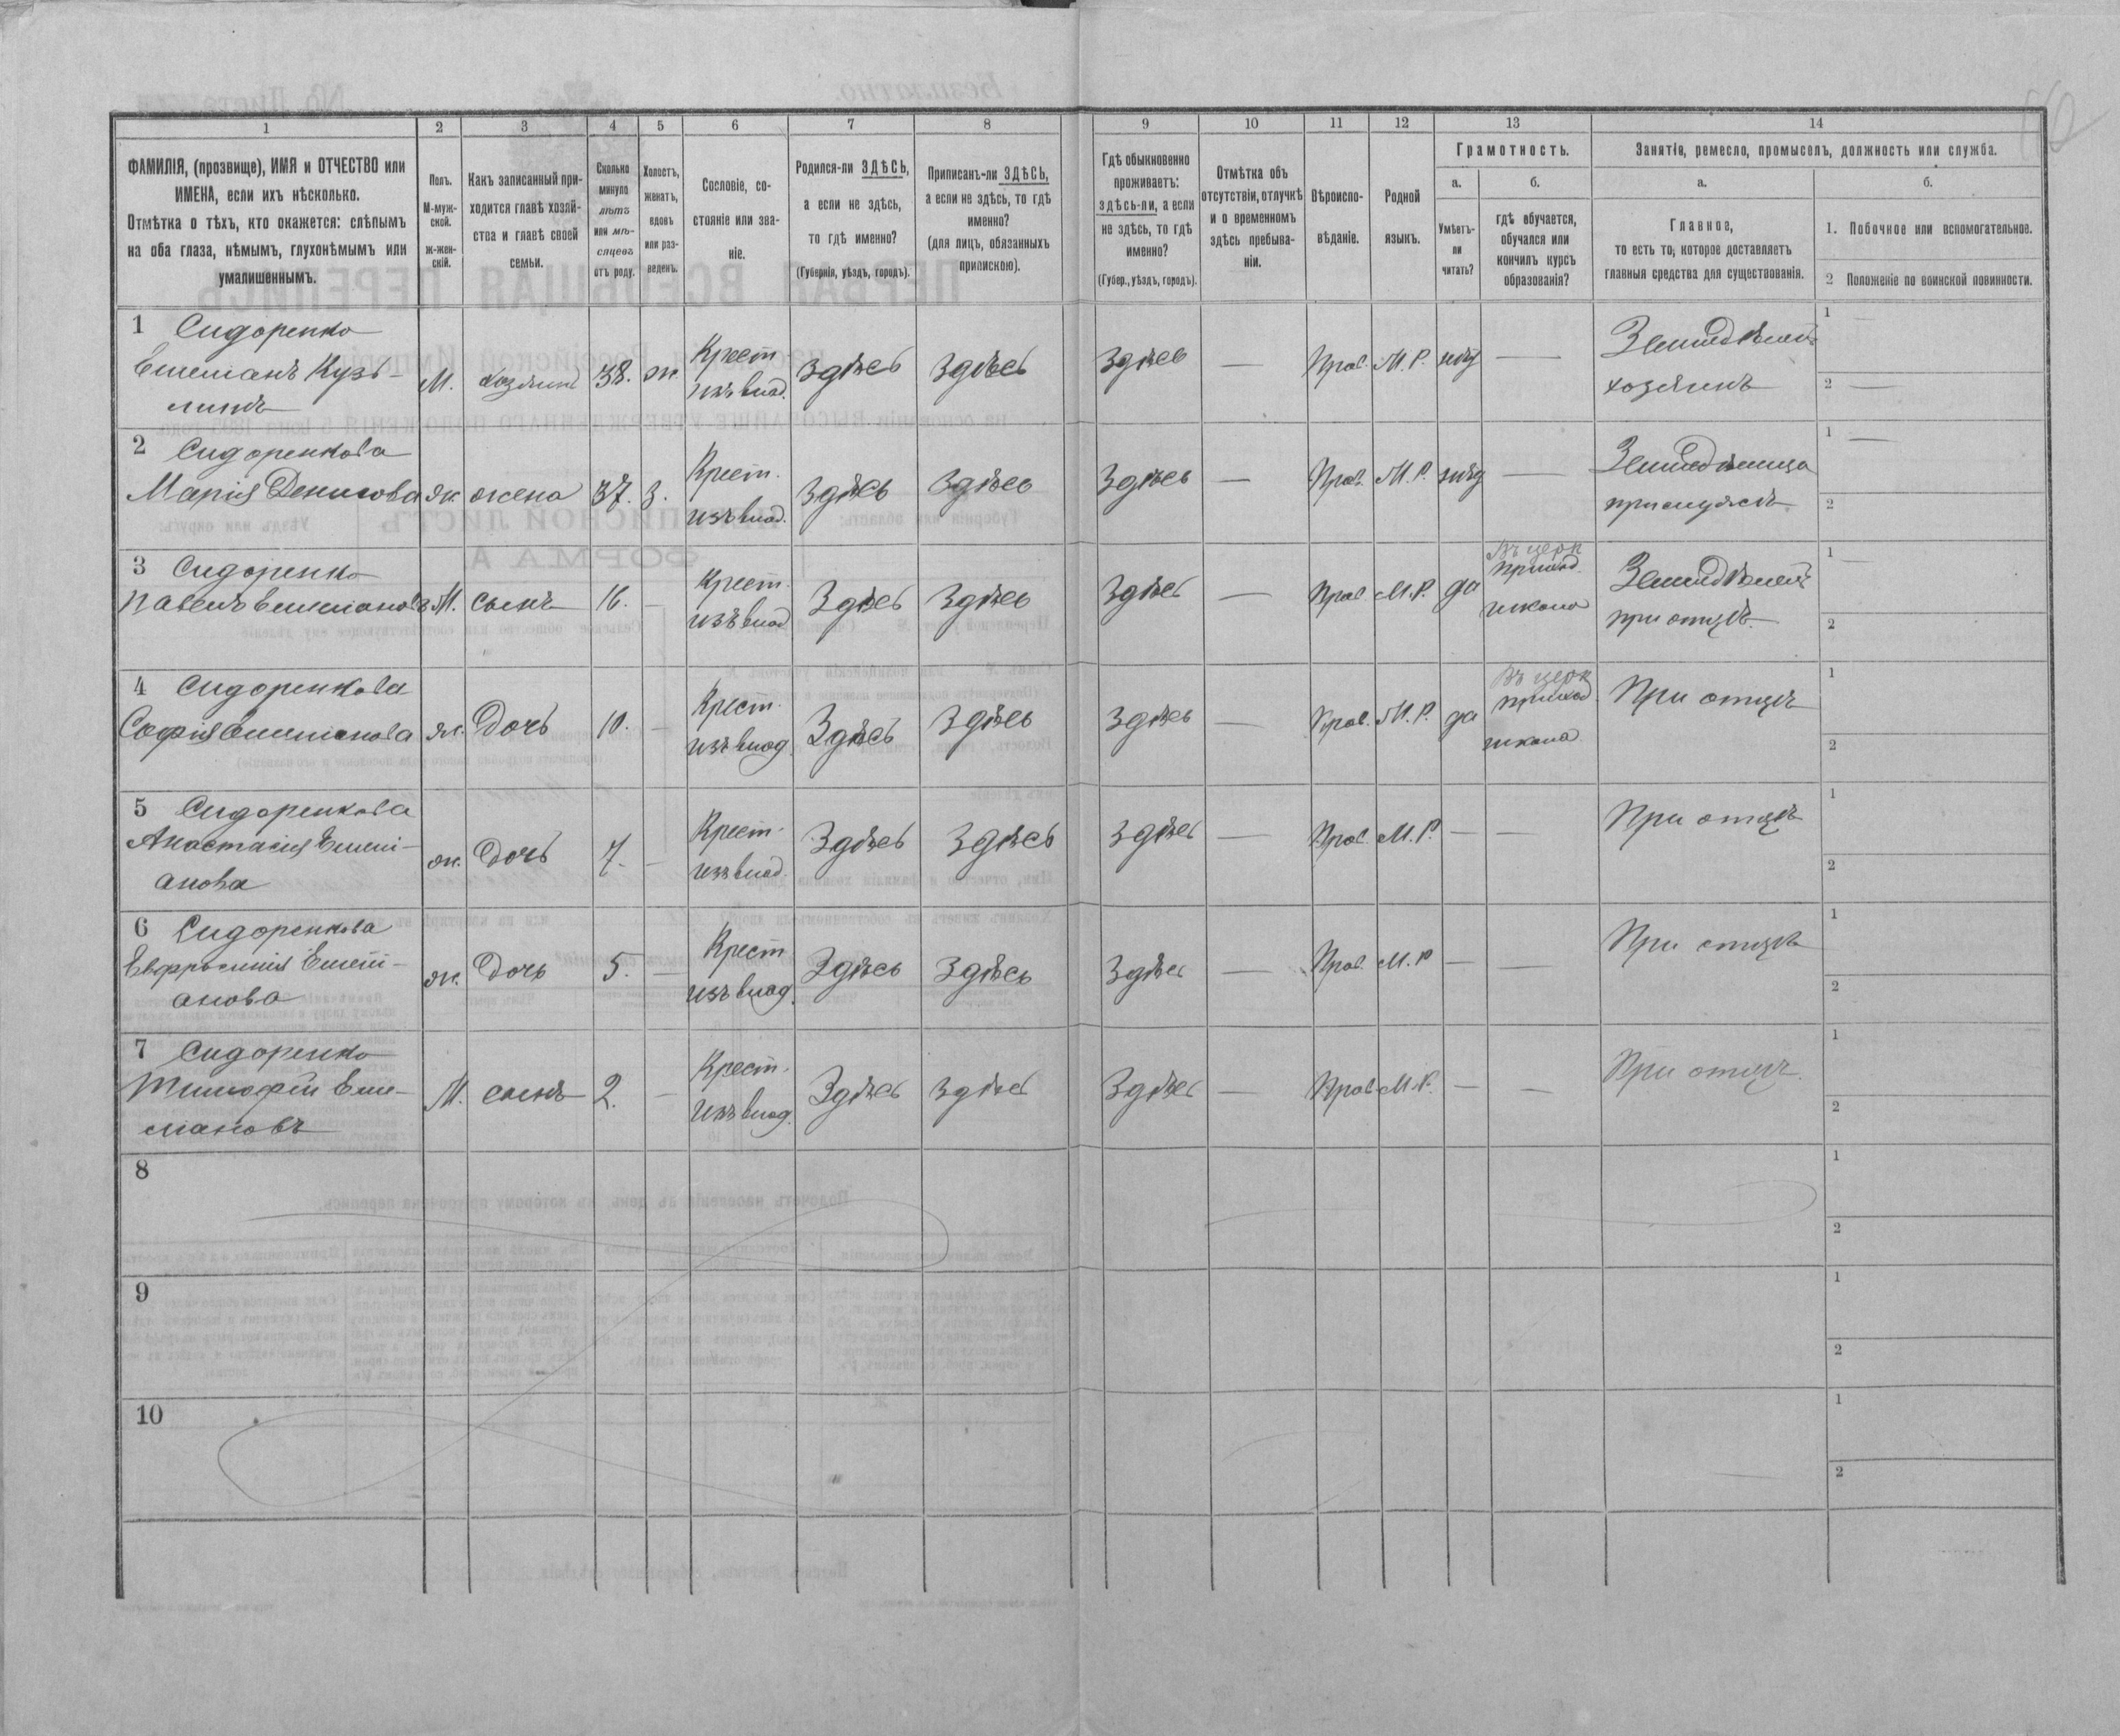 1 2 3 4 5 6 7 8 9 10 11 12 13 14
ФАМИЛІЯ, (прозвище), ИМЯ и ОТЧЕСТВО или
ИМЕНА, если ихъ нѣсколько.
Отмѣтка о тѣхъ, кто окажется: слѣпымъ
на оба глаза, нѣмымъ, глухонѣмымъ или
умалишеннымъ.
Полъ.
М-муж-
ской.
ж-жен-
скій.
Какъ записанный при-
ходится главѣ хозяй-
ства и главѣ своей
семьи.
Сколько
минуло
лѣтъ
или мѣ-
сяцевъ
отъ роду.
Холостъ,
женатъ,
вдовъ
или раз-
веденъ.
Сословіе, со-
стояніе или зва-
ніе.
Родился-ли ЗДѢСЬ,
а если не здѣсь,
то гдѣ именно?
(Губернія, уѣздъ, городъ).
Приписанъ-ли ЗДѢСЬ,
а если не здѣсь, то гдѣ
именно?
(для лицъ, обязанныхъ
припискою).
Гдѣ обыкновенно
проживаетъ:
здѣсь-ли, а если
не здѣсь, то гдѣ
именно?
(Губер., уѣздъ, городъ).
Отмѣтка объ
отсутствіи, отлучкѣ
и о временномъ
здѣсь пребыва-
ніи.
Вѣроиспо-
вѣданіе.
Родной
языкъ.
Грамотность.
а.
Умѣетъ-
ли
читать?
б.
гдѣ обучается,
обучался или
кончилъ курсъ
образованія?
Занятіе, ремесло, промыселъ, должность или служба.
а.
Главное,
то есть то, которое доставляетъ
главныя средства для существованія.
б.
1. Побочное или вспомогательное.
2 Положеніе по воинской повинности.
1 Сидоренко
Емельянъ Кузь-
минъ
М. хозяинъ 38. ж
Крест
изъ влад.
здѣсь здѣсь здѣсь — Прав. М. Р. нѣт —
Земледѣлецъ
хозяинъ
1 —
2 —
2 Сидоренкова
Марія Денисова
ж. жена 37. з.
Крест.
изъ влад.
здѣсь здѣсь здѣсь — Прав. М. Р. нѣт —
Земледѣлица
при мужѣ
1 —
2
3 Сидоренко
Павелъ Емельяновъ
М. сынъ 16. —
Крест.
изъ влад
Здѣсь Здѣсь Здѣсь — Прав. М. Р. да
Въ церк
приход.
школа
Земледѣлецъ
при отцѣ.
1 —
2
4 Сидоренкова
Софія Емельянова
ж. Дочь 10. —
Крест.
изъ влад
Здѣсь Здѣсь Здѣсь — Прав. М. Р. да
Въ церк
приход
школа
При отцѣ
1
2
5 Сидоренкова
Анастасія Емель-
янова
ж. Дочь 7. —
Крест.
изъ влад.
Здѣсь Здѣсь Здѣсь — Прав. М. Р. — —
При отцѣ
1
2
6 Сидоренкова
Евфросинія Емель-
янова
ж. Дочь 5. —
Крест
изъ влад.
Здѣсь Здѣсь Здѣсь — Прав. М. Р — —
При отцѣ
1
2
7 Сидоренко
Тимофей Еме-
льяновъ
М. сынъ 2. —
Крест.
изъ влад.
Здѣсь здѣсь Здѣсь — Прав. М. Р. — —
При отцѣ.
1
2
8
1
2
9
1
2
10
1
2